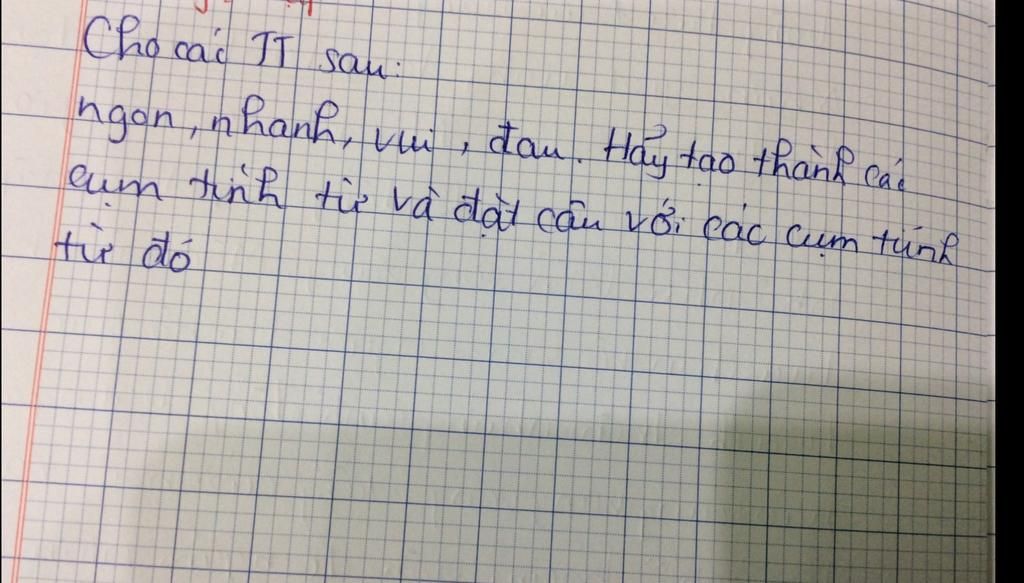 Cho các TT sau:
ngon, nhanh, vui, đau. Hẩy tạo thành các
cụm tính từ và đặt câu với các cụm tính
từ đó